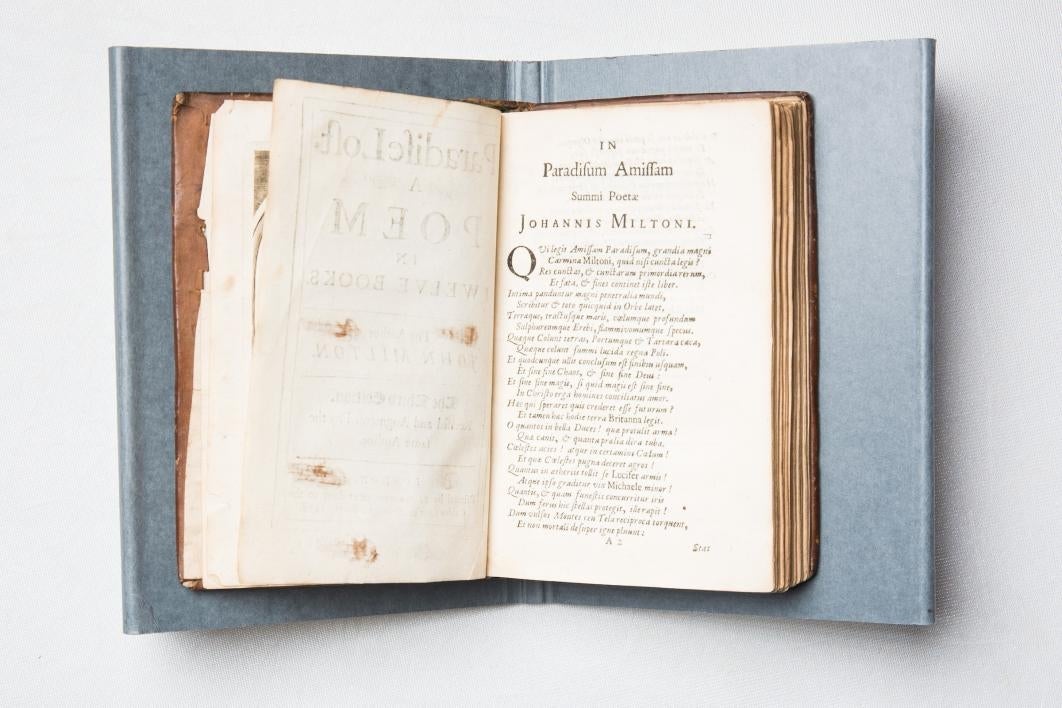 ParadiſeLoſt.
A
POEM
IN
TWELVE BOOKS.
JOHN MILTON.
The Third Edition.
Reviſed and Augmented by the
ſame Author.
IN
Paradiſum Amiſſam
Summi Poetæ
JOHANNIS MILTONI.
QUi legis Amiſſam Paradiſum, grandia magni
Carmina Miltoni, quid niſi cuncta legis?
Res cunctas, & cunctarum primordia rerum,
Et fata, & fines continet iſte liber.
Intima panduntur magni penetralia mundi,
Scribitur & toto quicquid in Orbe latet,
Terræque, tractuſque maris, cœlumque profundum
Sulphureumque Erebi, flammivomumque ſpecus.
Quæque colunt terras, Portumque & Tartara cæca,
Quæque colunt ſummi lucida regna Poli.
Et quodcunque ullis concluſum eſt finibus uſquam,
Et ſine fine Chaos, & ſine fine Deus:
Et ſine fine magis, ſi quid magis eſt ſine fine,
In Chriſto erga homines conciliatus amor.
Hæc qui ſperaret quis crederet eſſe futurum?
Et tamen hæc hodie terra Britanna legit.
O quantos in bella Duces! quæ protulit arma!
Quæ canit, & quanta prælia dira tuba.
Cœleſtes acies! atque in certamine Cœlum!
Et quæ Cœleſtes pugna deceret agros!
Quantus in ætheriis tollit ſe Lucifer armis!
Atque ipſo graditur vix Michaele minor!
Quantis, & quam funeſtis concurritur iris
Dum ferus hic ſtellas protegit, ille rapit!
Dum vulſos Montes ceu Tela reciproca torquent,
Et non mortali deſuper igne pluunt:
A 2
Stat